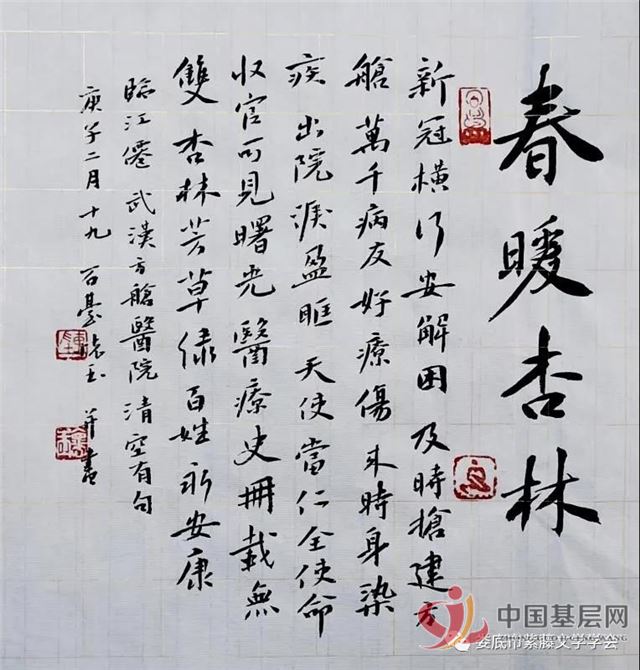 春暖杏林
新冠橫行安解困及時搶建方
艙萬千病友好療傷來時身染
疾出院淚盈眶天使當仁全使命
収官可見曙光醫療史冊載無
雙杏林芳草綠百姓永安康
臨江僊武漢方艙醫院清空有句
庚子二月十九百臺 玉并書
中国基层网
娄底市紫藤文学学会